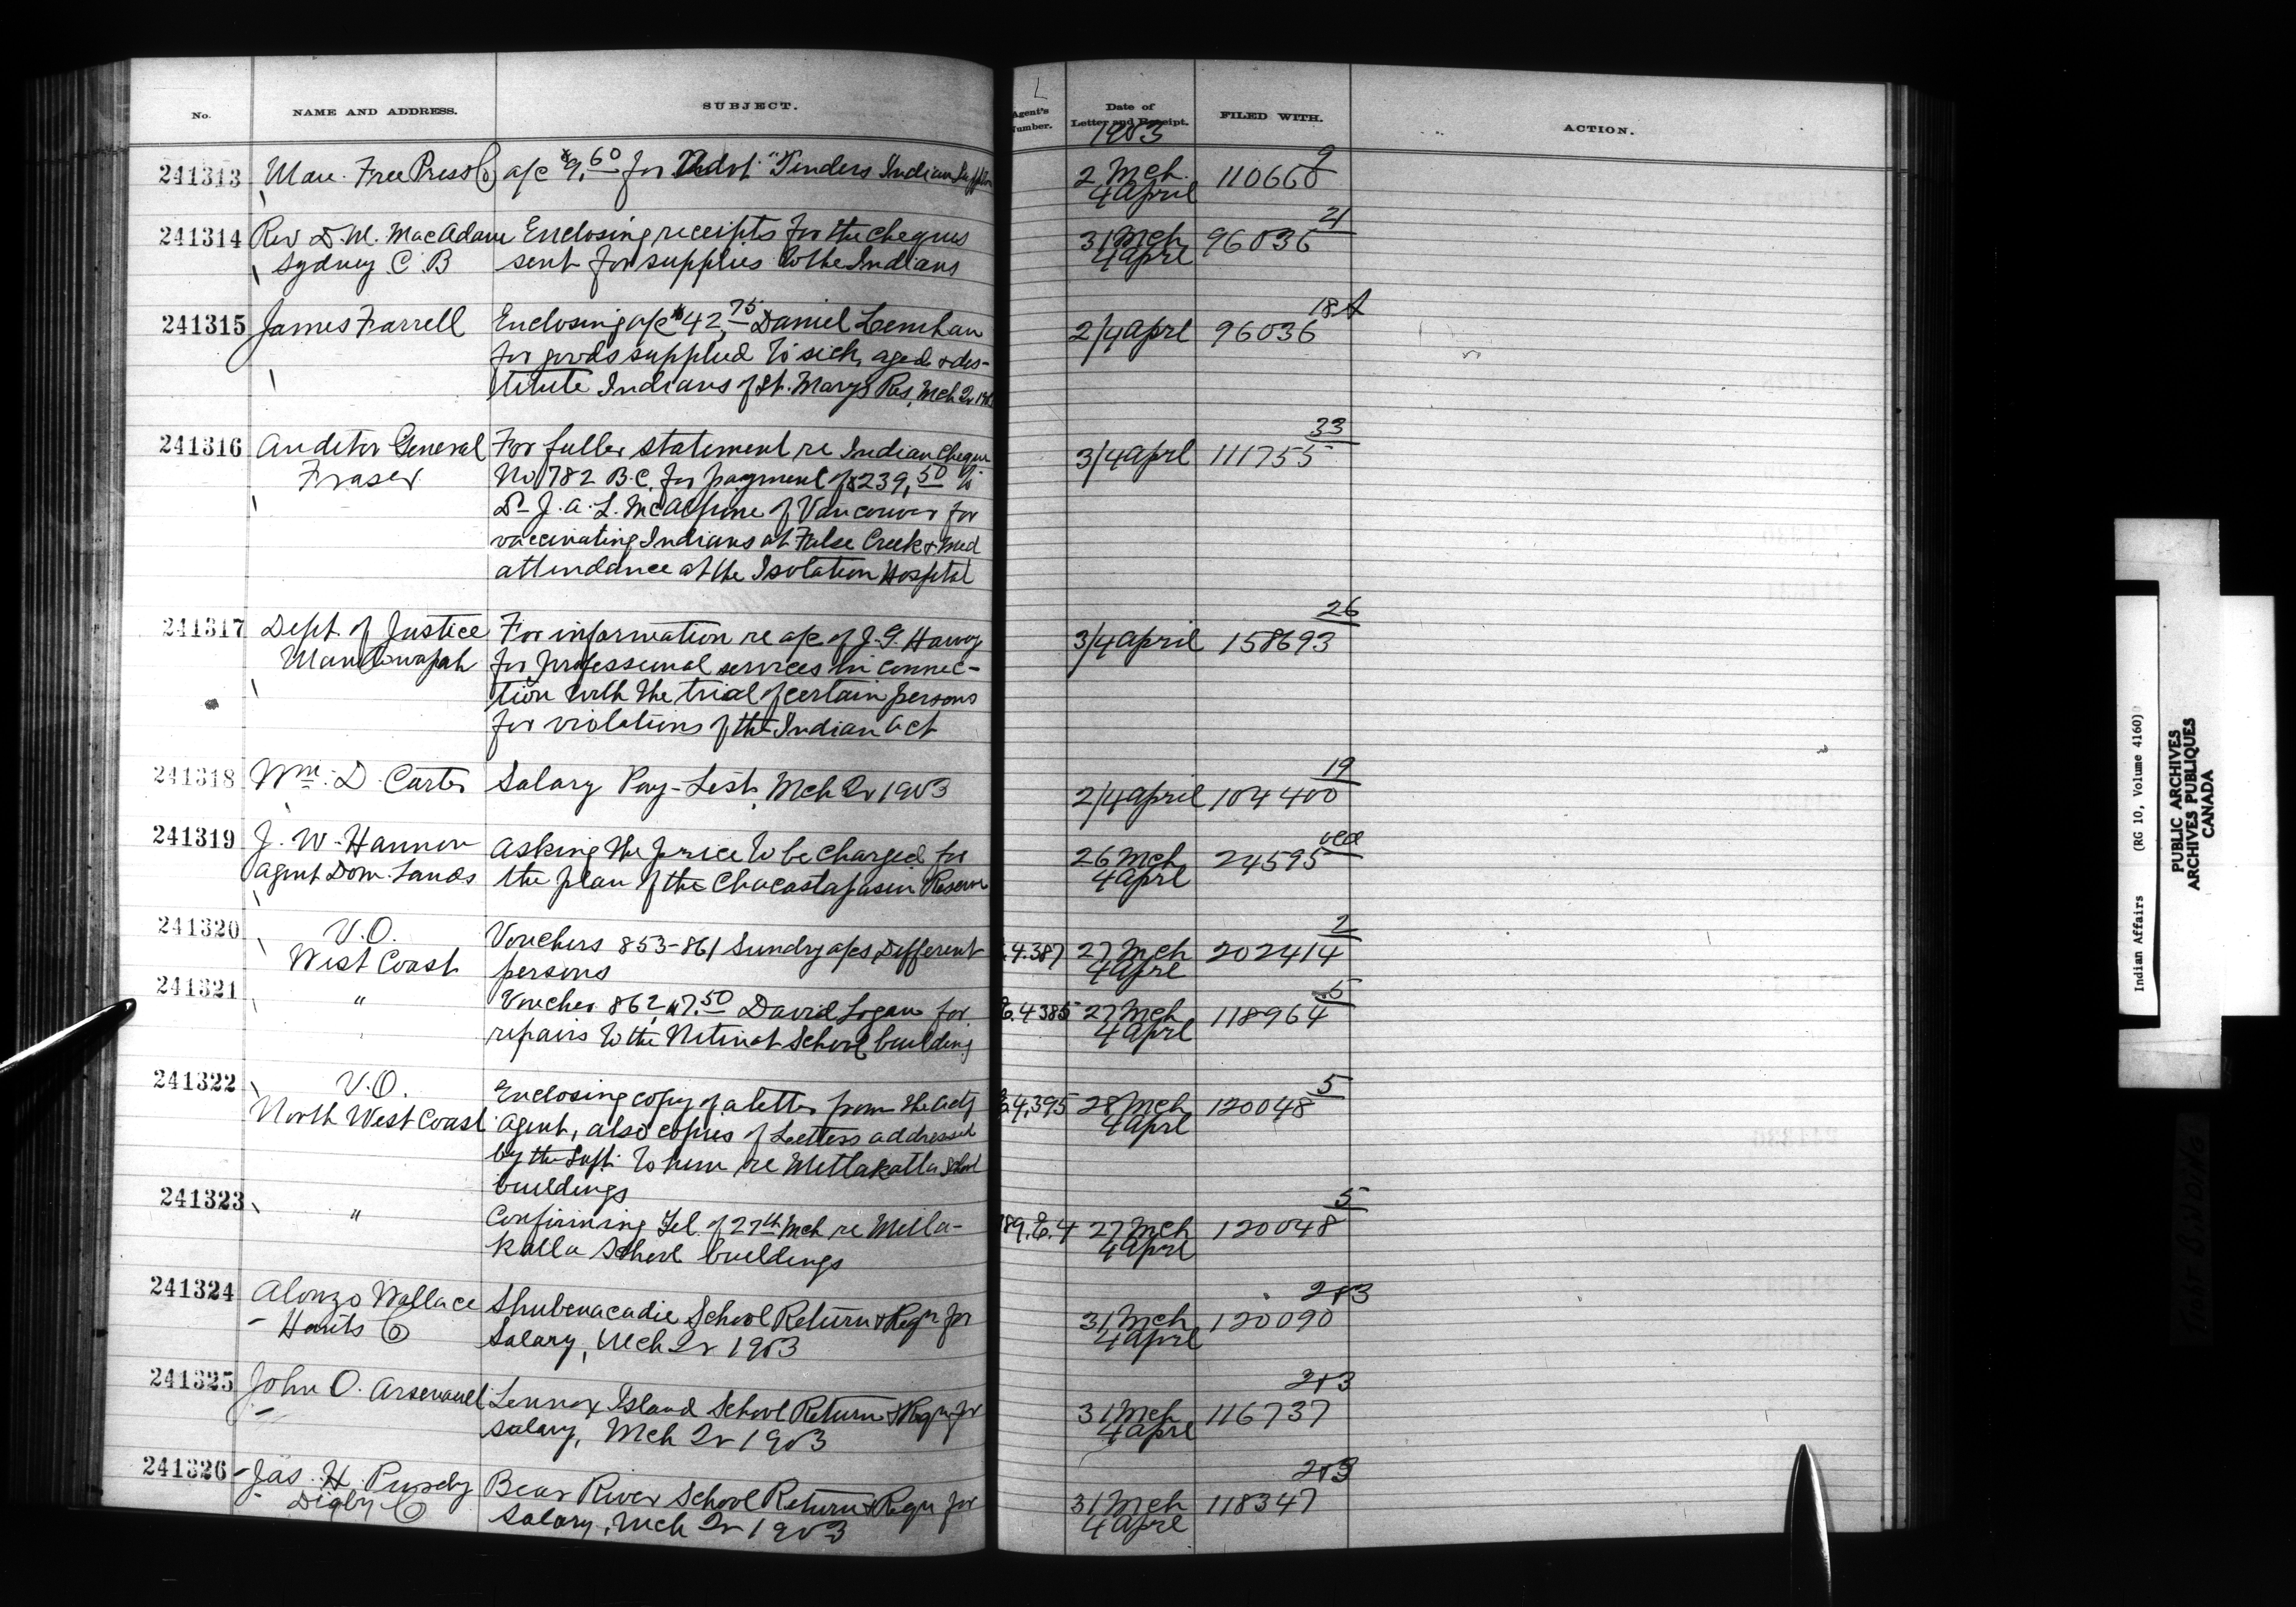 No. NAME AND ADDRESS. SUBJECT. Agent's Number. Date of Letter and Receipt. FILED WITH. ACTION.
1903
241313 Man. Free Press Co a/c $9.60 for Advt "Tenders Indian Supplies 2 Mch 110660 9
4 April
241314 Rev D. M. MacAdam Enclosing receipts for the cheques 31 Mch 96036 21
Sydney C B sent for supplies to the Indians 4 Aprl
241315 James Farrell Enclosing a/c $42.75 Daniel Lenihan 2/4 Aprl 96036 18A
for goods supplied to sick, aged & des-
titute Indians of St. Marys Res, Mch Qr 1903
241316 Auditor General For fuller statement re Indian Cheque 3/4 Aprl 111755 33
Fraser No 782 B.C. for payment of $239.50 to
Dr J. A. L. McAlpine of Vancouver for
vaccinating Indians at False Creek & med
attendance at the Isolation Hospital
241317 Dept of Justice For information re a/c of J. G. 3/4 April 158693 26
Maniwapah for professional services in connec-
tion with the trial of certain persons
for violations of the Indian Act
241318 Wm. D Carter Salary Pay-List, Mch Qr 1903 2/4 April 104400 19
241319 J. W. Hannon Asking the price to be charged for 26 Mch 24595
Agent Dom. Lands the plan of the Chacastapasin Reserve 4 Aprl
241320 V.O. Vouchers 853-861 Sundry a/cs Different 4.387 27 Mch 202414 2
West Coast persons 4 Aprl
241321 " Voucher 862, $7.50 David Logan for 4385 27 Mch 118964 5
repairs to the Nitinat School building 4 Aprl
241322 V.O. Enclosing copy of a letter from the actg 4,395 28 Mch 120048 5
North West Coast Agent, also copies of Letters addressed 4 Aprl
by the Supt. to him re Metlakatla School
buildings
241323 " Confirming Tel. of 27th Mch re Metla- 789.C.4 27 Mch 120048 5
katla School buildings 4 Aprl
241324 Alonzo Wallace Shubenacadie School Return & Reqn for 31 Mch 120090 203
Hants Co Salary, Mch Qr 1903 4 Aprl
241325 John O. Arsenault Lennox Island School Return & Reqn for 31 Mch 116737 203
salary, Mch Qr 1903 4 Aprl
241326 Jas. H. Purdy Bear River School Return & Reqn for 31 Mch 118347 203
Digby Co Salary, Mch Qr 1903 4 Aprl
Indian Affairs (RG 10, Volume 4160)
PUBLIC ARCHIVES
ARCHIVES PUBLIQUES
CANADA